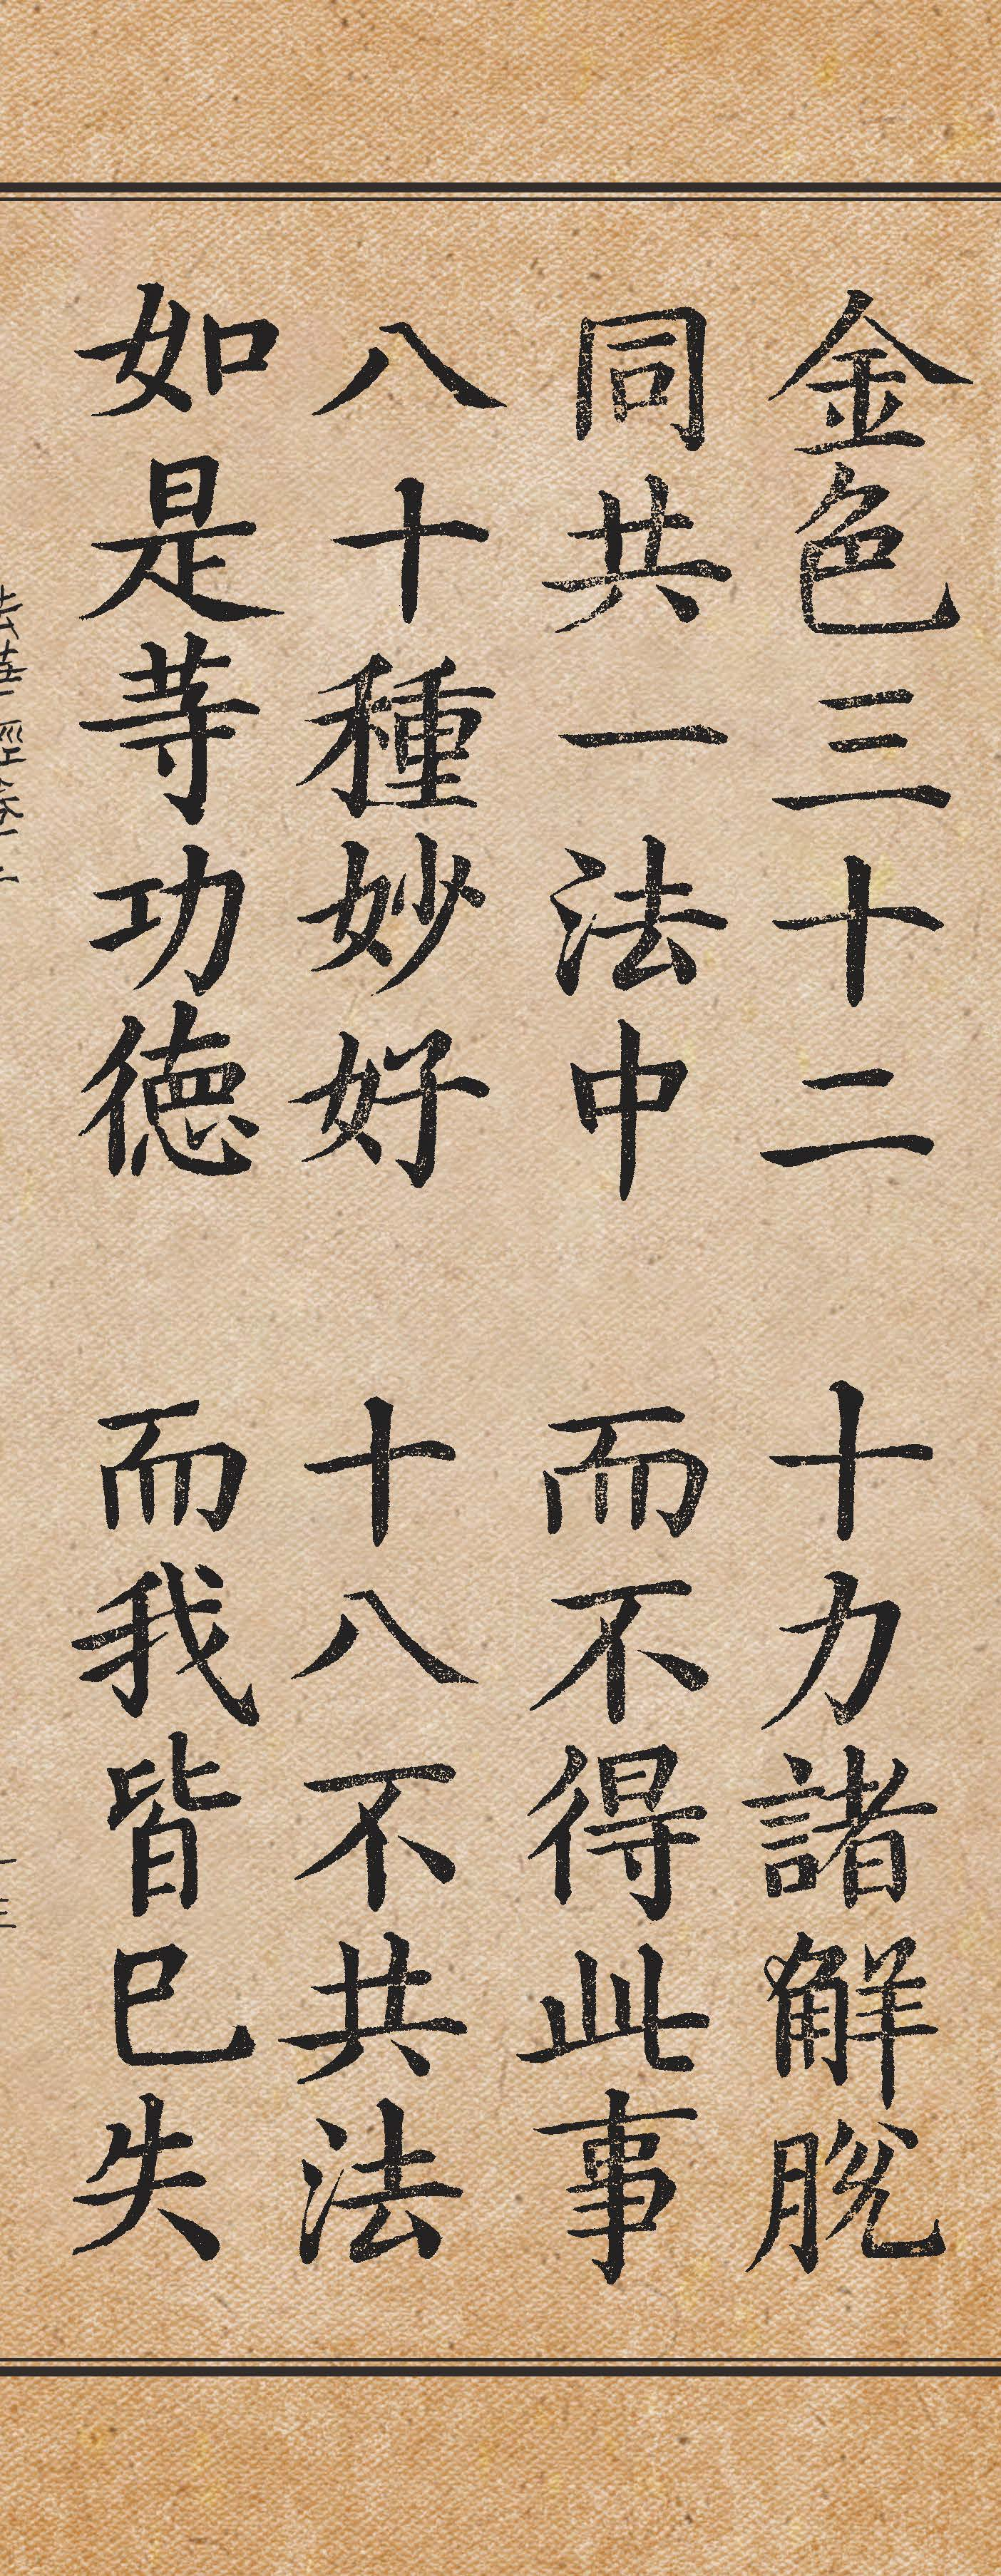 金色三十二 十力諸解脫
同共一法中 而不得此事
八十種妙好 十八不共法
如是等功德 而我皆已失